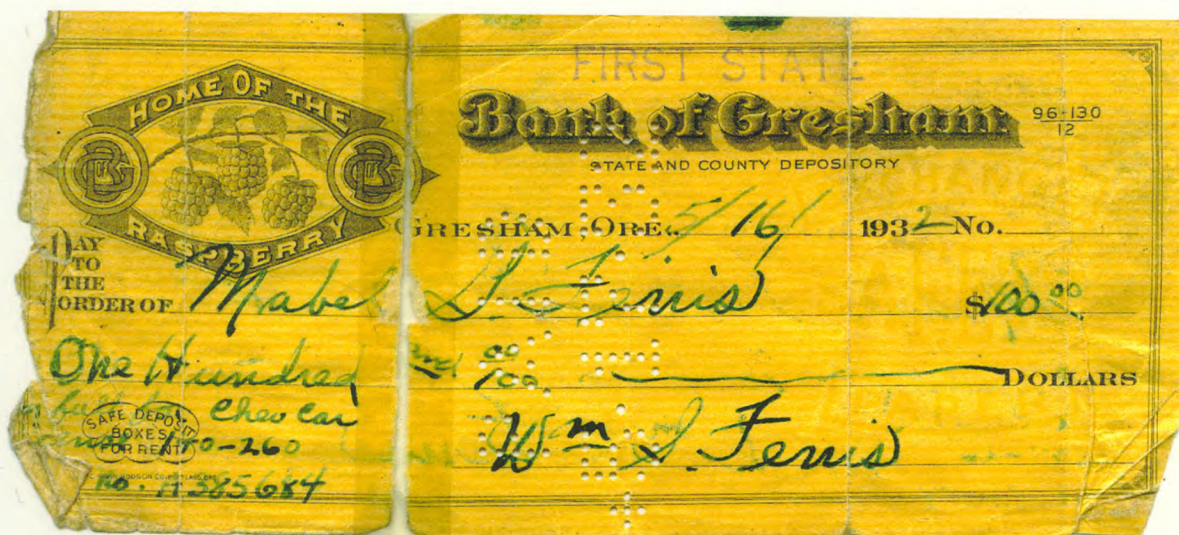 FIRST STATE
HOME OF THE
RASPBERRY
Bank of Gresham
96-130
12
STATE AND COUNTY DEPOSITORY
GRESHAM, ORE. 5/16/ 1932 No.
PAY TO THE ORDER OF Mabel S. Ferris $100 00
One Hundred and 00/100 DOLLARS
Chev Car
SAFE DEPOSIT
BOXES
FOR RENT
-260
No. A385684
Wm S. Ferris